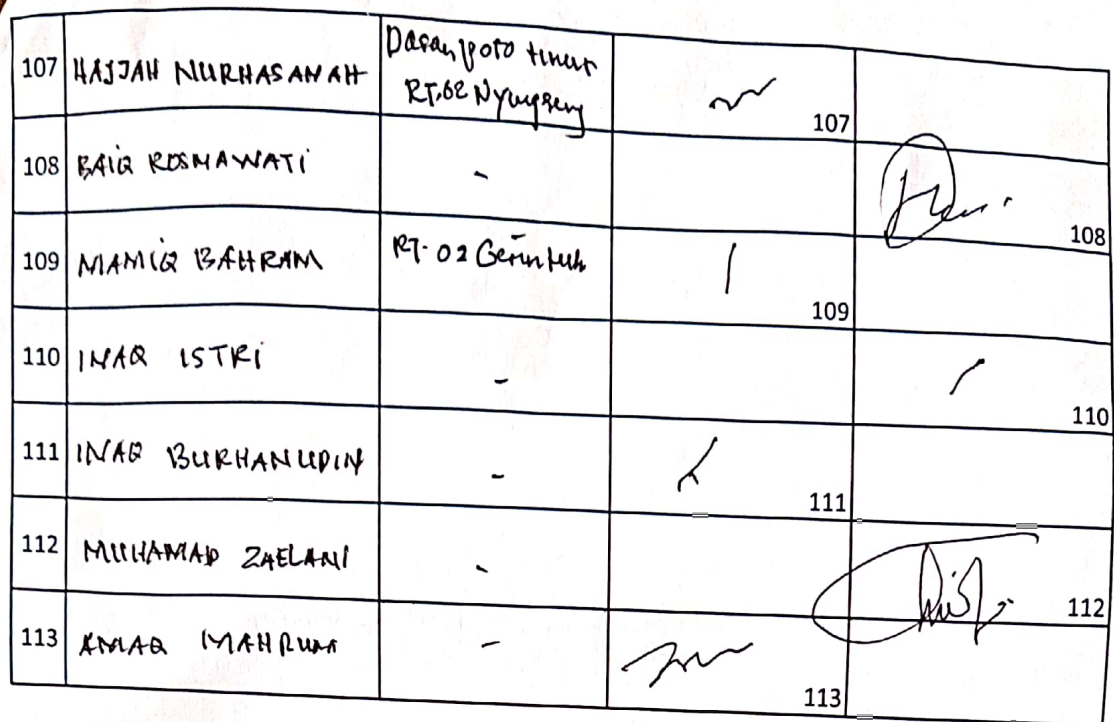 107 HAJJAH NURHASANAH timur
RT.02 107
108 BAIQ ROSMAWATI - 108
109 MAMIQ BAHRAM RT-02 109
110 INAQ ISTRI - 110
111 INAQ BURHANUDIN - 111
112 MUHAMAD ZAELANI - 112
113 AMAQ MAHRUM - 113